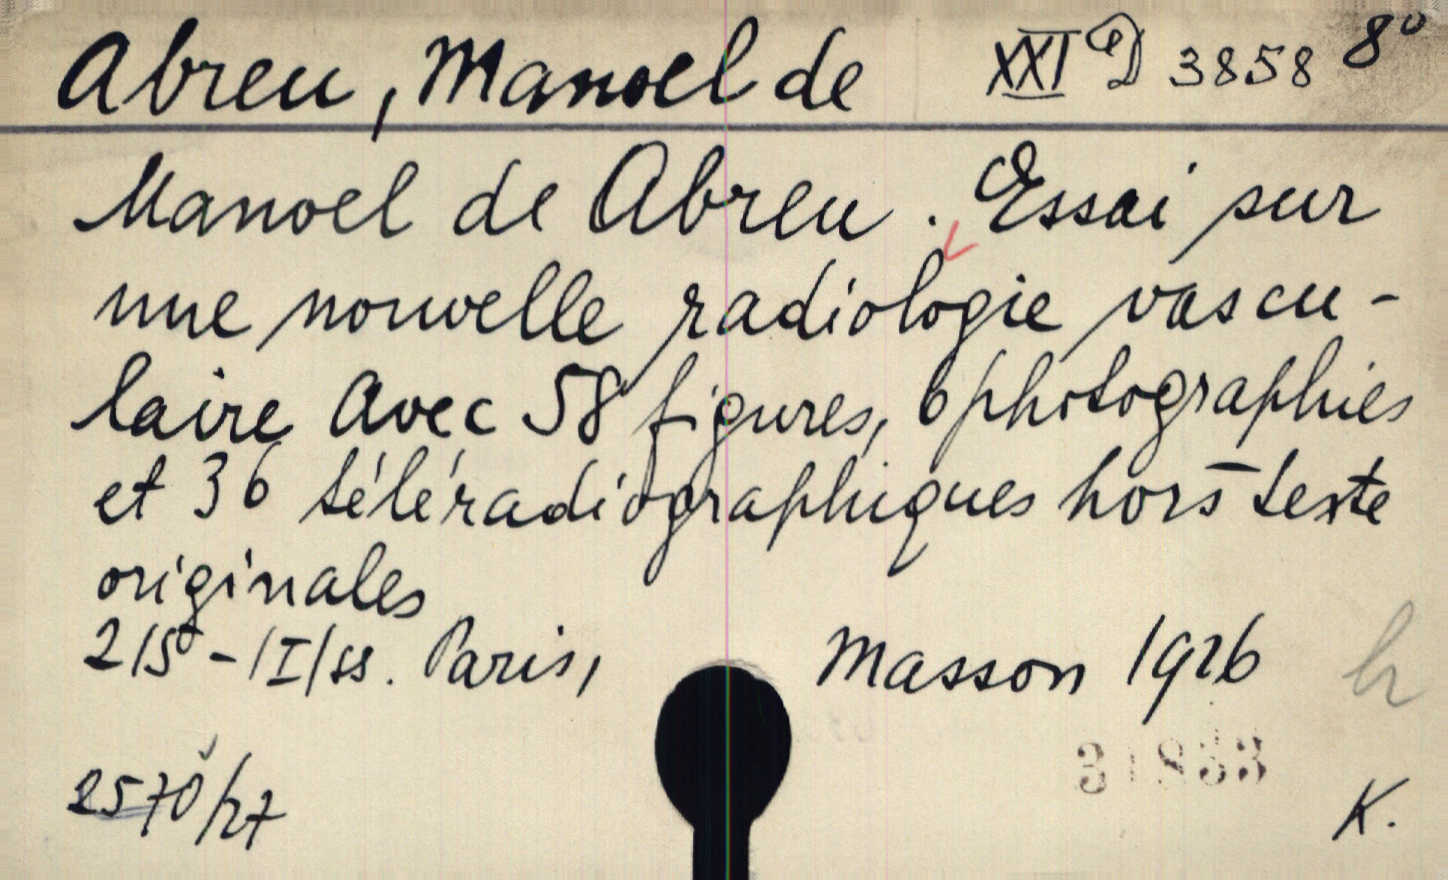 Abreu, Manoel de XXI D 3858 8°
Manoel de Abreu. Essai sur
une nouvelle radiologie vascu-
laire avec 58 figures, 6 photographies
et 36 téléradiographiques hors-texte
originales
215-/I/ss. Paris, Masson 1926
h
31833
2570/27
K.